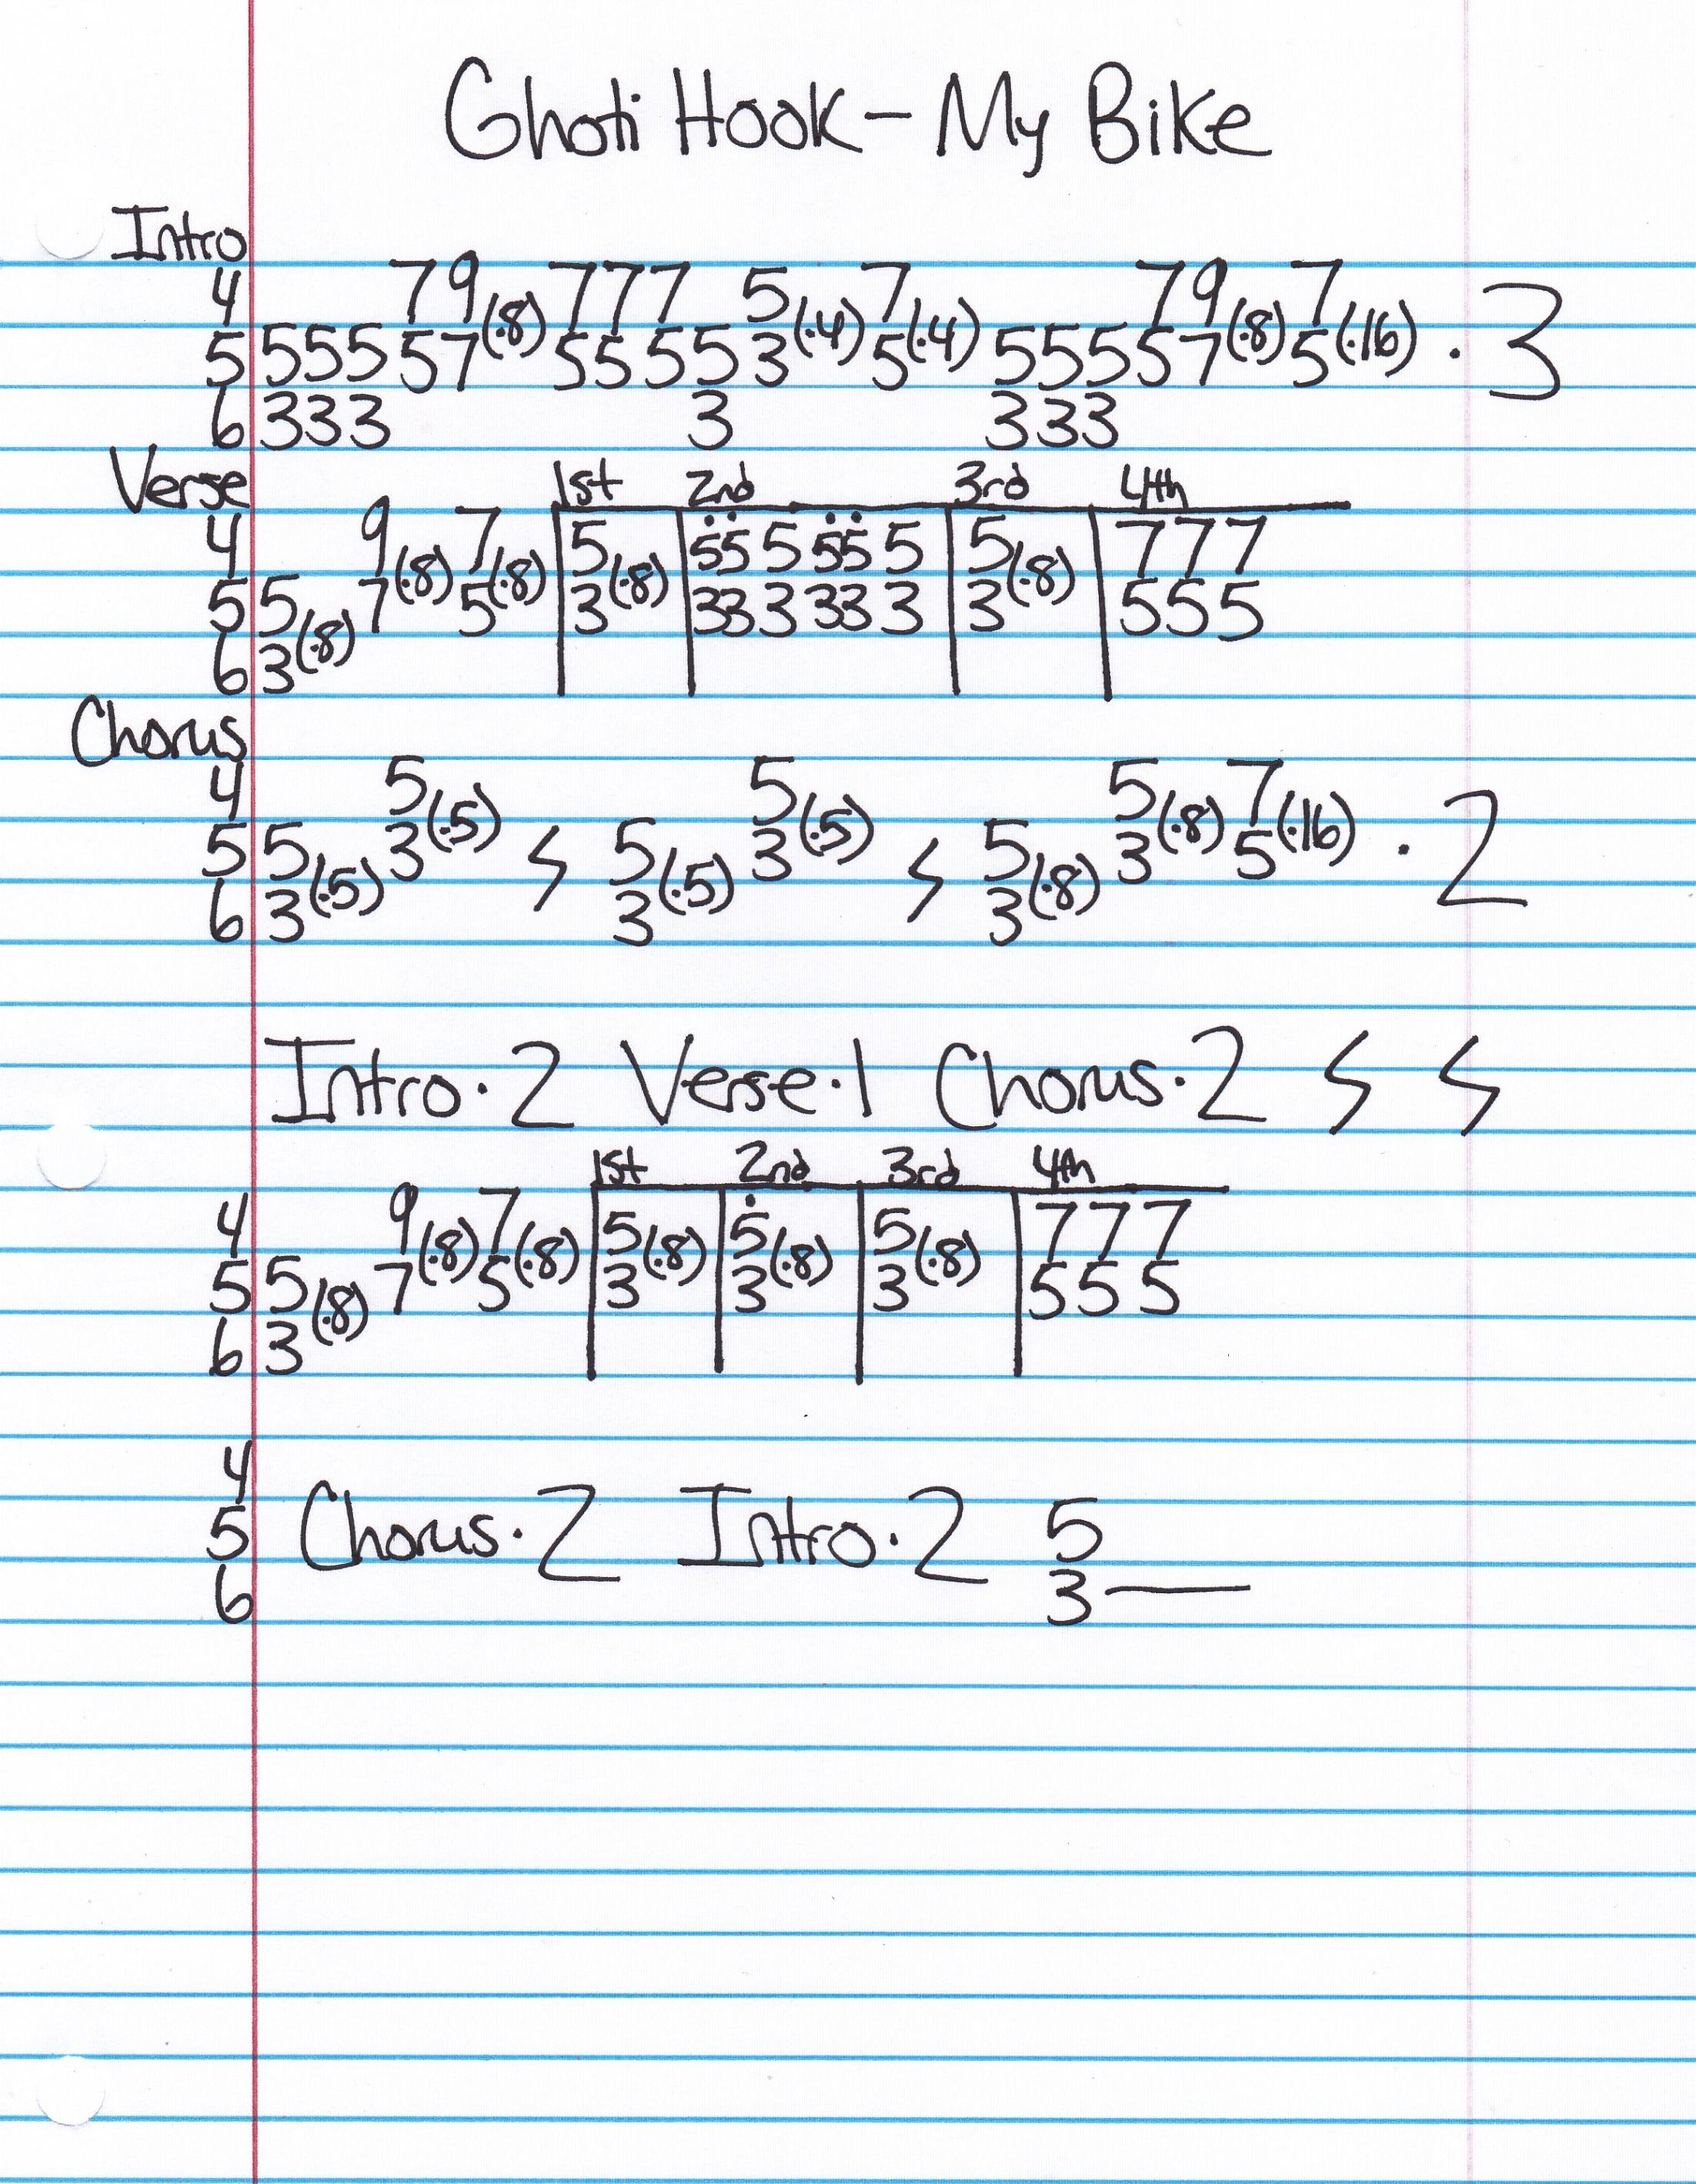 Ghoti Hook - My Bike
Intro
4 79(·8) 777 5(·4) 7(·4) 79(·8) 7(·16)
5 555 57 55 55 3 5 555 5 7 5 · 3
6 333 3 333
Verse 1st 2nd 3rd 4th
4 9(·8) 7(·8) 5(·8) 55 5 55 5 5(·8) 777
5 5(·8) 7 5 3 33 3 33 3 3 555
6 3
Chorus
4 5(·5) 5(·5) 5(·8) 7(·16)
5 5(·5) 3 5(·5) 3 5(·8) 3 5 · 2
6 3 3 3
Intro·2 Verse·1 Chorus·2
1st 2nd 3rd 4th
4 9(·8) 7(·8) 5(·8) 5(·8) 5(·8) 777
5 5(·8) 7 5 3 3 3 555
6 3
4
5 Chorus·2 Intro·2 5
6 3—